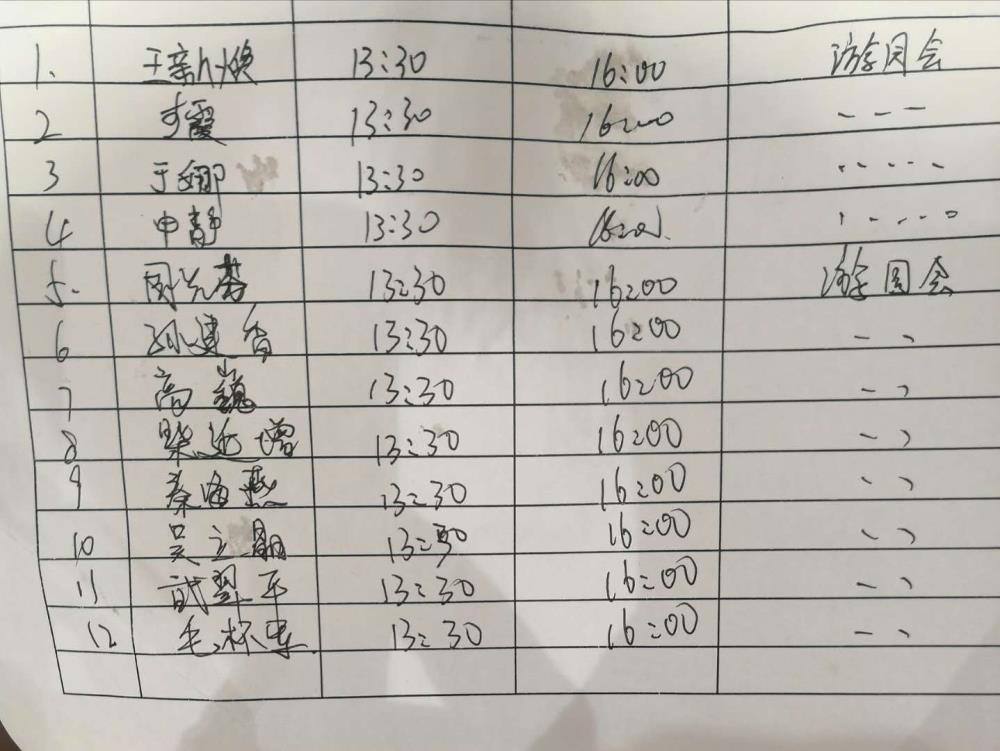 1. 13:30 16:00 游园会
2 霞 13:30 16:00 - - -
3 于娜 13:30 16:00 .....
4 申静 13:30 16:00 .....
5. 周芳 13:30 16:00 游园会
6 孙建香 13:30 16:00 - 、
7 高巍 13:30 16:00 - 、
8 增 13:30 16:00 - 、
9 秦海燕 13:30 16:00 、、
10 吴立 13:30 16:00 、、
11 武翠平 13:30 16:00 - 、
12 毛 13:30 16:00 - 、